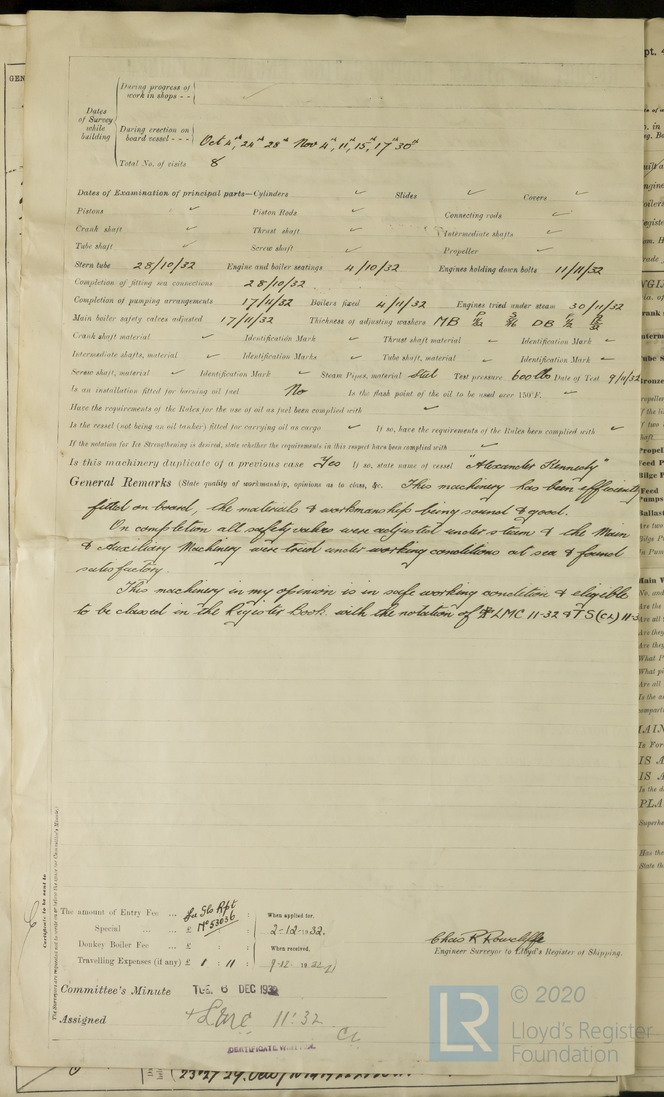 During progress of
work in shops - -
Dates
of Survey
while
building
During erection on
board vessel - - -
Oct 4th, 24th 28th Nov 4th, 11th, 15th, 17th 30th
Total No. of visits 8
Dates of Examination of principal parts—Cylinders ✓ Slides ✓ Covers ✓
Pistons ✓ Piston Rods ✓ Connecting rods ✓
Crank shaft ✓ Thrust shaft ✓ Intermediate shafts ✓
Tube shaft ✓ Screw shaft ✓ Propeller ✓
Stern tube 28/10/32 Engine and boiler seatings 4/10/32 Engines holding down bolts 11/11/32
Completion of fitting sea connections 28/10/32
Completion of pumping arrangements 17/11/32 Boilers fixed 4/11/32 Engines tried under steam 30/11/32
Main boiler safety valves adjusted 17/11/32 Thickness of adjusting washers MB P S DB P S
Crank shaft material ✓ Identification Mark ✓ Thrust shaft material ✓ Identification Mark ✓
Intermediate shafts, material ✓ Identification Marks ✓ Tube shaft, material ✓ Identification Mark ✓
Screw shaft, material ✓ Identification Mark ✓ Steam Pipes, material Steel Test pressure 600 lbs Date of Test 9/11/32
Is an installation fitted for burning oil fuel No Is the flash point of the oil to be used over 150°F. ✓
Have the requirements of the Rules for the use of oil as fuel been complied with ✓
Is the vessel (not being an oil tanker) fitted for carrying oil as cargo ✓ If so, have the requirements of the Rules been complied with ✓
If the notation for Ice Strengthening is desired, state whether the requirements in this respect have been complied with ✓
Is this machinery duplicate of a previous case Yes If so, state name of vessel "Alexander Kennedy"
General Remarks (State quality of workmanship, opinions as to class, &c. This machinery has been efficiently
fitted on board, the materials & workmanship being sound & good.
On completion all safety valves were adjusted under steam & the Main
& Auxiliary Machinery were tried under working conditions at sea & found
satisfactory.
This machinery in my opinion is in safe working condition & eligible
to be classed in the Register Book with the notation of LMC 11-32 & TS (CL) 11-3
Certificate to be sent to
The amount of Entry Fee ... See Gls Rpt
Special ... £ No 53036
Donkey Boiler Fee ... £
Travelling Expenses (if any) £ 1 : 11 :
When applied for,
2-12-1932.
When received,
9-12-1932
Chas R Rowcliffe
Engineer Surveyor to Lloyd's Register of Shipping.
Committee's Minute TUE. 6 DEC 1932
Assigned + LMC 11.32
CL
CERTIFICATE WRITTEN.
© 2020
LR
Lloyd's Register
Foundation